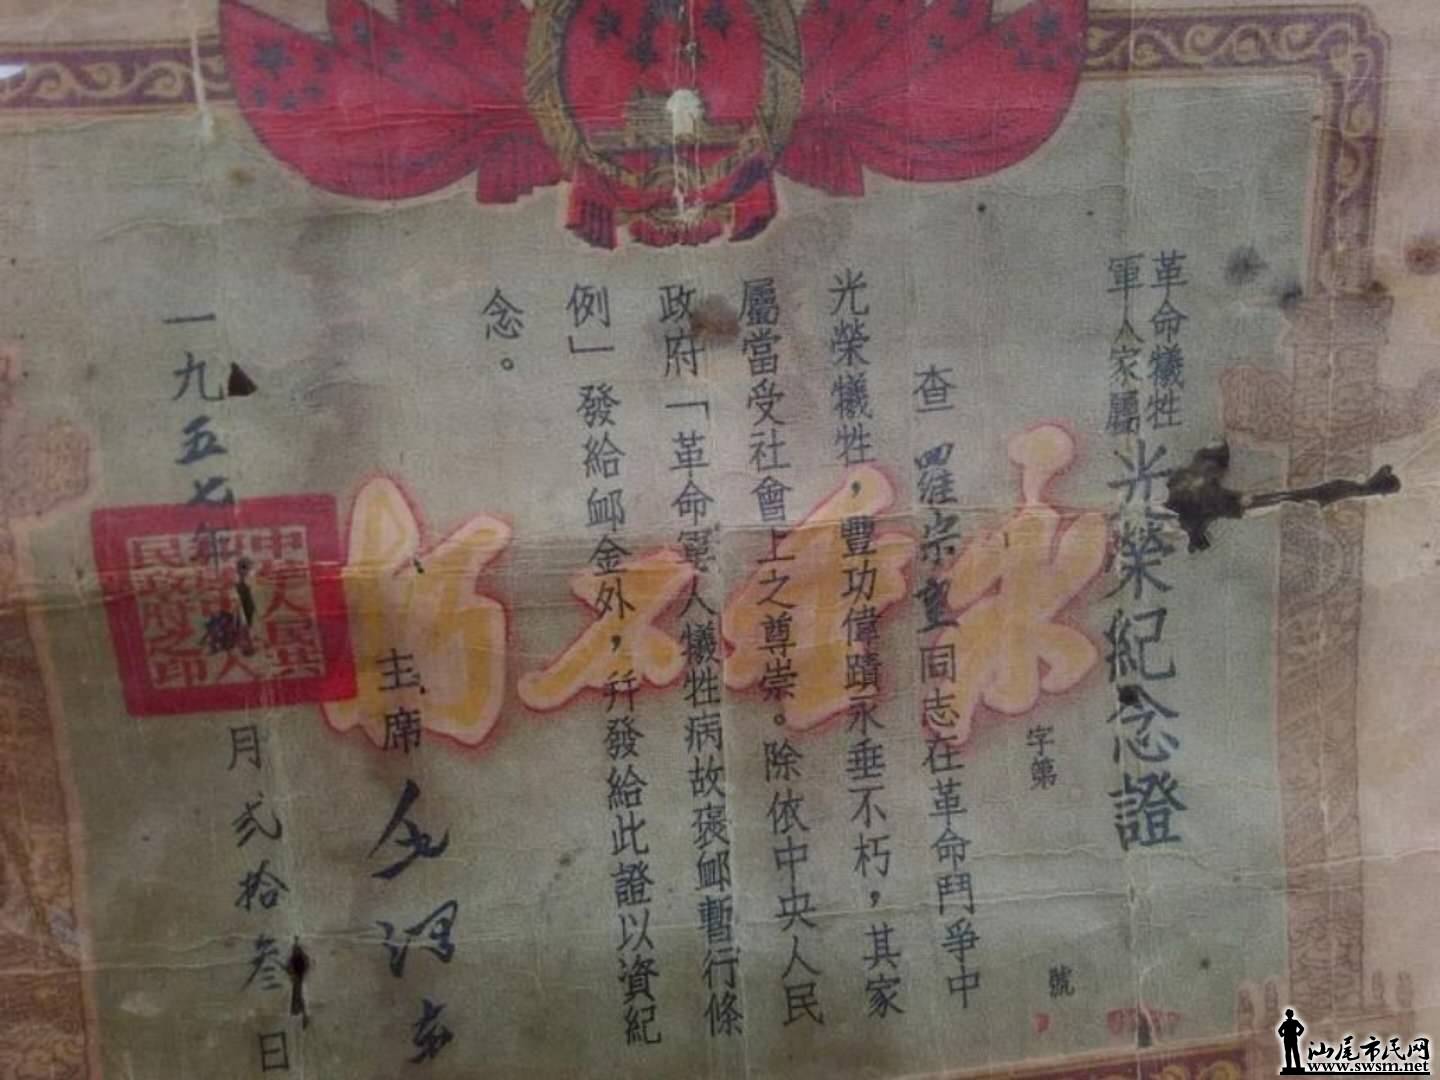 革命犧牲
軍人家屬
光榮紀念證
字第 號
查 羅宗重同志在革命鬥爭中
光榮犧牲，豐功偉蹟永垂不朽，其家
屬當受社會上之尊崇。除依中央人民
政府「革命軍人犧牲病故褒卹暫行條
例」發給卹金外，幷發給此證以資紀
念。
主席 毛澤東
一九五七年 月弍拾叁日
永垂不朽
中華人民共
和國中央人
民政府之印
汕尾市民网
www.swsm.net